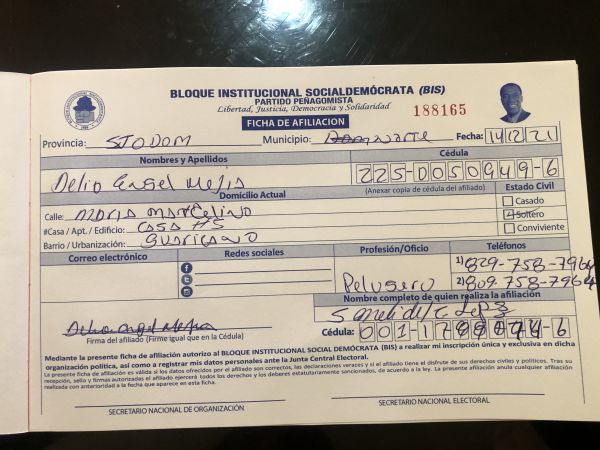 BLOQUE INSTITUCIONAL SOCIALDEMÓCRATA (BIS)
PARTIDO PEÑAGOMISTA
Libertad, Justicia, Democracia y Solidaridad
188165
FICHA DE AFILIACION
Provincia: STO DOM Municipio: norte Fecha: 14/12/21
Nombres y Apellidos Cédula
Delio Angel Mejia 225-0050949-6
Domicilio Actual (Anexar copia de cédula del afiliado) Estado Civil
Calle: maria marcelino Casado
#Casa / Apt. / Edificio: casa #5 Soltero
Barrio / Urbanización: Guaricano Conviviente
Correo electrónico Redes sociales Profesión/Oficio Teléfonos
1) 829-758-7964
Pelusero 2) 809-758-7964
Nombre completo de quien realiza la afiliación
Delio angel Mejia
Firma del afiliado (Firme igual que en la Cédula) Cédula: 001-17
Mediante la presente ficha de afiliación autorizo al BLOQUE INSTITUCIONAL SOCIAL DEMÓCRATA (BIS) a realizar mi inscripción única y exclusiva en dicha
organización política, así como a registrar mis datos personales ante la Junta Central Electoral.
La presente ficha de afiliación es válida si los datos ofrecidos por el afiliado son correctos, las declaraciones veraces y si el afiliado tiene el disfrute de sus derechos civiles y políticos. Tras su
recepción, sello y firmas autorizadas el afiliado ejercerá todos los derechos y los deberes estatutariamente sancionados, de acuerdo a la ley. La presente afiliación anula cualquier afiliación
realizada con anterioridad a la fecha que aparece en esta ficha.
SECRETARIO NACIONAL DE ORGANIZACIÓN SECRETARIO NACIONAL ELECTORAL